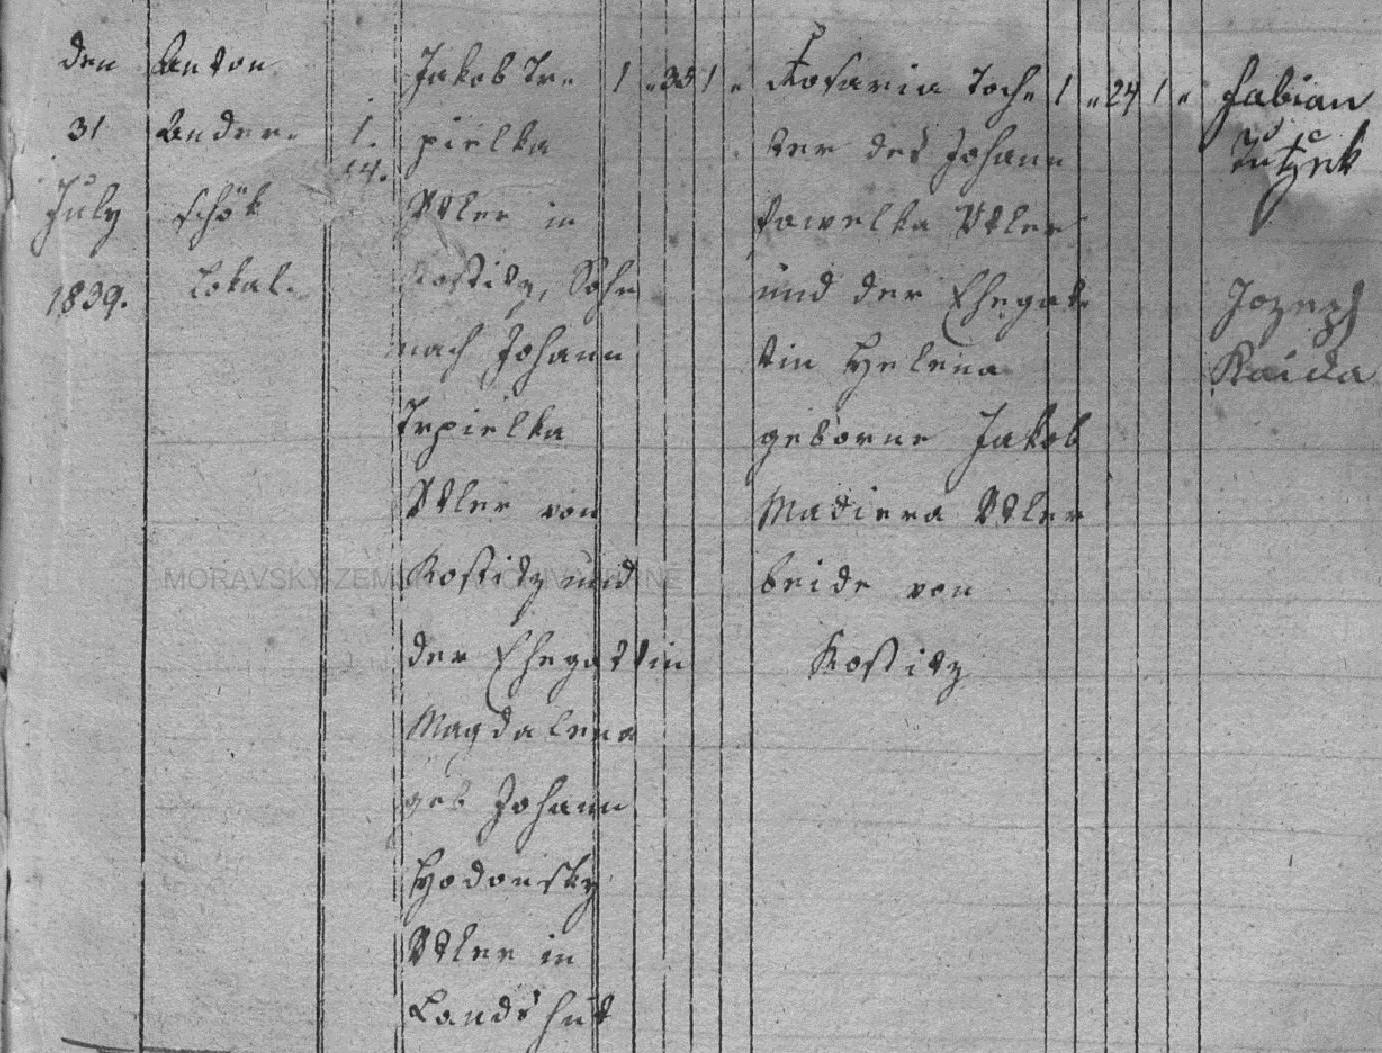 den
31
July
1839.
Anton
Ander-
schök
Lokal.
1.
14.
Jakob Tr-
pielka
Vtler in
Kostitz, Sohn
nach Johann
Trpielka
Vtler von
Kostitz und
der Ehegattin
Magdalena
geb Johann
Hodonsky
Vtler in
Landshut
1 " 35 1 "
Rosaria Toch-
ter des Johann
Pawelka Vtler
und der Ehegat-
tin Helena
geborne Jakob
Madiera Vtler
beide von
Kostitz
1 " 24 1 "
Fabian
Jozeph
Kaida
MORAVSKÝ ZEMSKÝ ARCHIV V BRNĚ